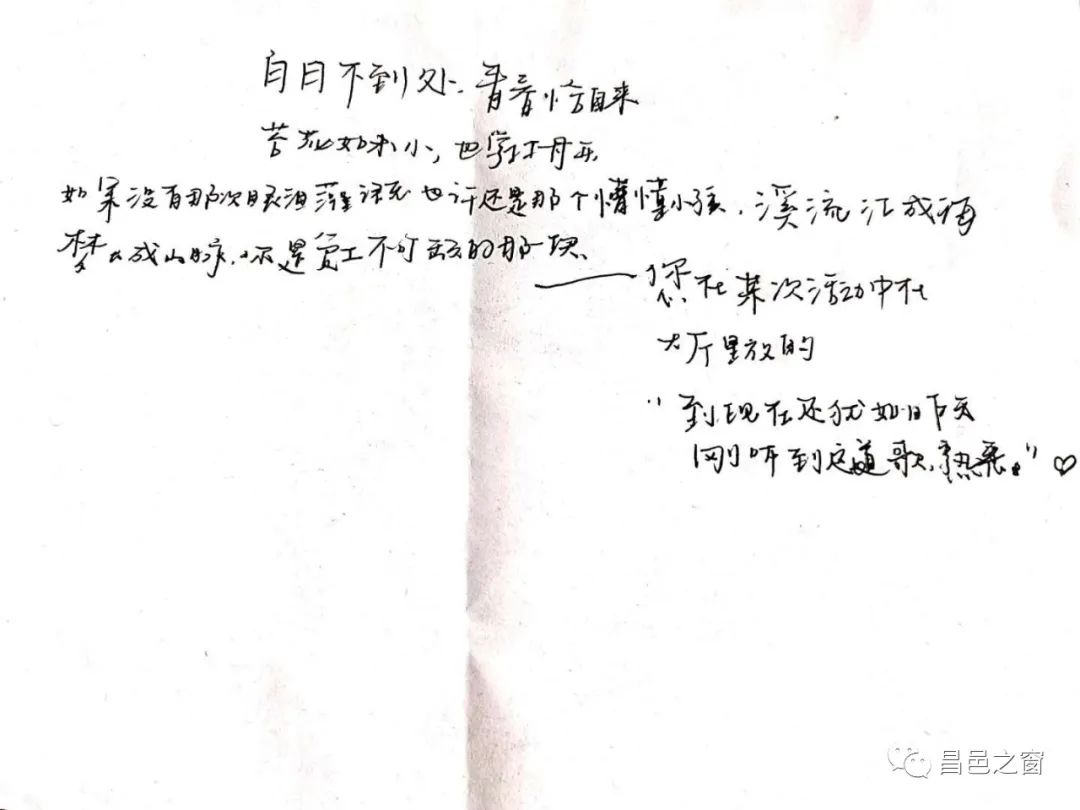 白日不到处、青春恰自来
苔花如米小，也学牡丹开
如果没有那次眼泪灌溉 也许还是那个懵懂小孩、溪流汇成海
梦 成山脉、 是 不可 的那一块、
——您在某次活动中在
大厅里放的
"到现在还犹如昨天
刚听到这 歌、热泪。" ♡
昌邑之窗